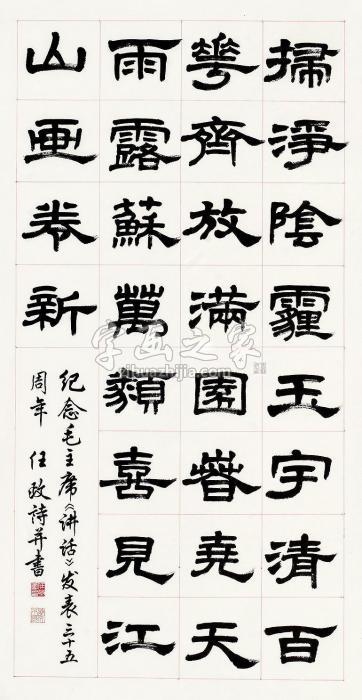 掃淨陰霾玉宇清百
華齊放滿園春堯天
雨露蘇萬類喜見江
山画卷新
纪念毛主席《讲话》发表三十五
周年 任政詩并書
字画之家
zihuazhijia.com